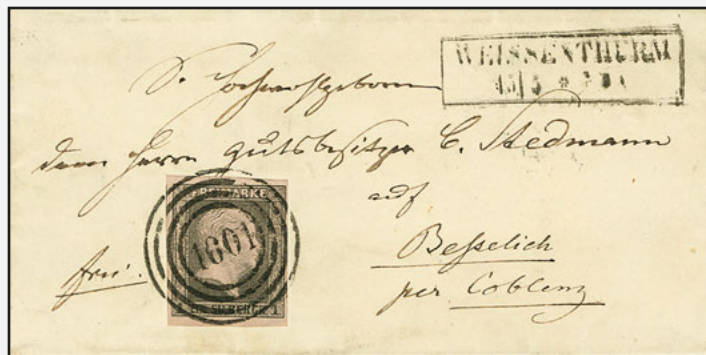 WEISSENTHURM
15/5 *
Sr. Hochwohlgeboren
dem Herrn Gutsbesitzer C. Stedmann
auf
Besselich
per Coblenz
frei.
FREIMARKE
1601
1 SILBERGR. 1